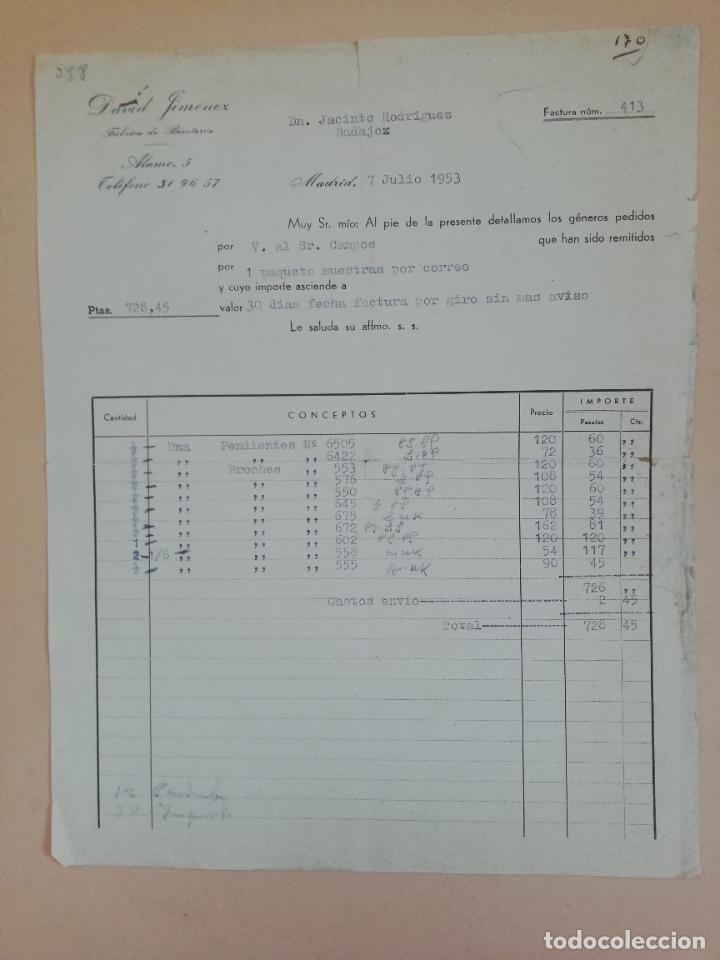 298
170
David Jiménez
Fábrica de Bisutería
Álamo, 5
Teléfono 31 96 57
Dn. Jacinto Rodriguez
Badajoz
Factura núm. 413
Madrid, 7 Julio 1953
Muy Sr. mío: Al pie de la presente detallamos los géneros pedidos
por V. al Sr. Campos que han sido remitidos
por 1 paquete muestras por correo
y cuyo importe asciende a
Ptas. 728,45 valor 30 dias fecha factura por giro sin mas aviso
Le saluda su affmo. s. s.
Cantidad CONCEPTOS Precio IMPORTE
Pesetas Cts.
Dna Pendientes Nº 6505 120 60 ,,
,, ,, ,, 6422 72 36 ,,
,, Broches ,, 553 120 60 ,,
,, ,, ,, 576 108 54 ,,
,, ,, ,, 550 120 60 ,,
,, ,, ,, 645 108 54 ,,
,, ,, ,, 675 78 39 ,,
,, ,, ,, 672 162 81 ,,
1 ,, ,, ,, 602 120 120 ,,
2-1/6 ,, ,, ,, 558 54 117 ,,
,, ,, ,, 555 90 45
726 ,,
Gastos envio 2 45
Total 728 45
12
todocoleccion
todocoleccion.net